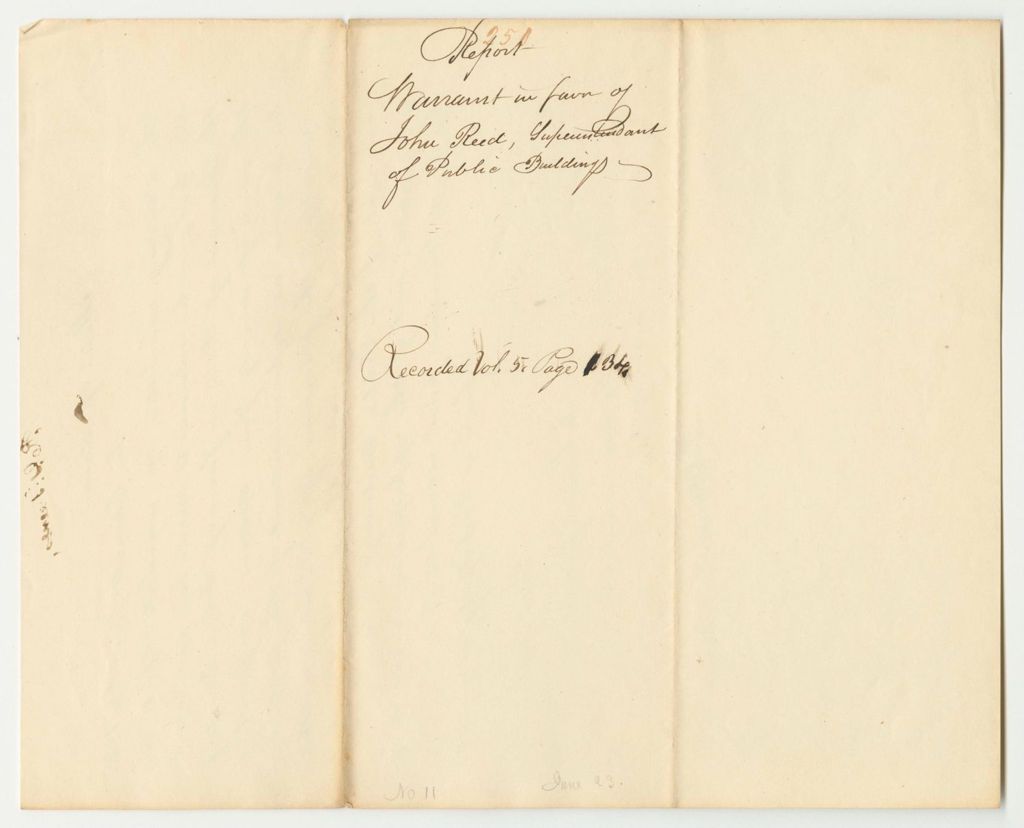 251
Report
Warrant in favor of
John Reed, Superintendant
of Public Buildings
Recorded Vol. 5. Page 134.
No 11
June 23.